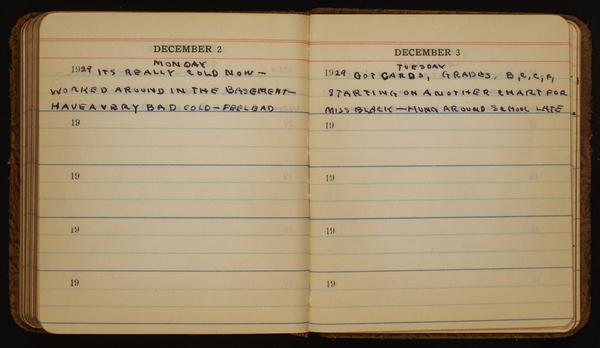 DECEMBER 2
MONDAY
1929 ITS REALLY COLD NOW—
WORKED AROUND IN THE BASEMENT—
HAVE A VERY BAD COLD—FEEL BAD
19
19
19
19
DECEMBER 3
TUESDAY
1929 GOT CARDS, GRADES, B, C, C, F,
STARTING ON ANOTHER CHART FOR
MISS BLACK—HUNG AROUND SCHOOL LATE
19
19
19
19